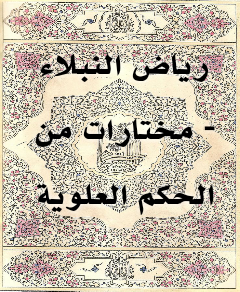 رياض النبلاء
- مختارات من
الحكم العلوية